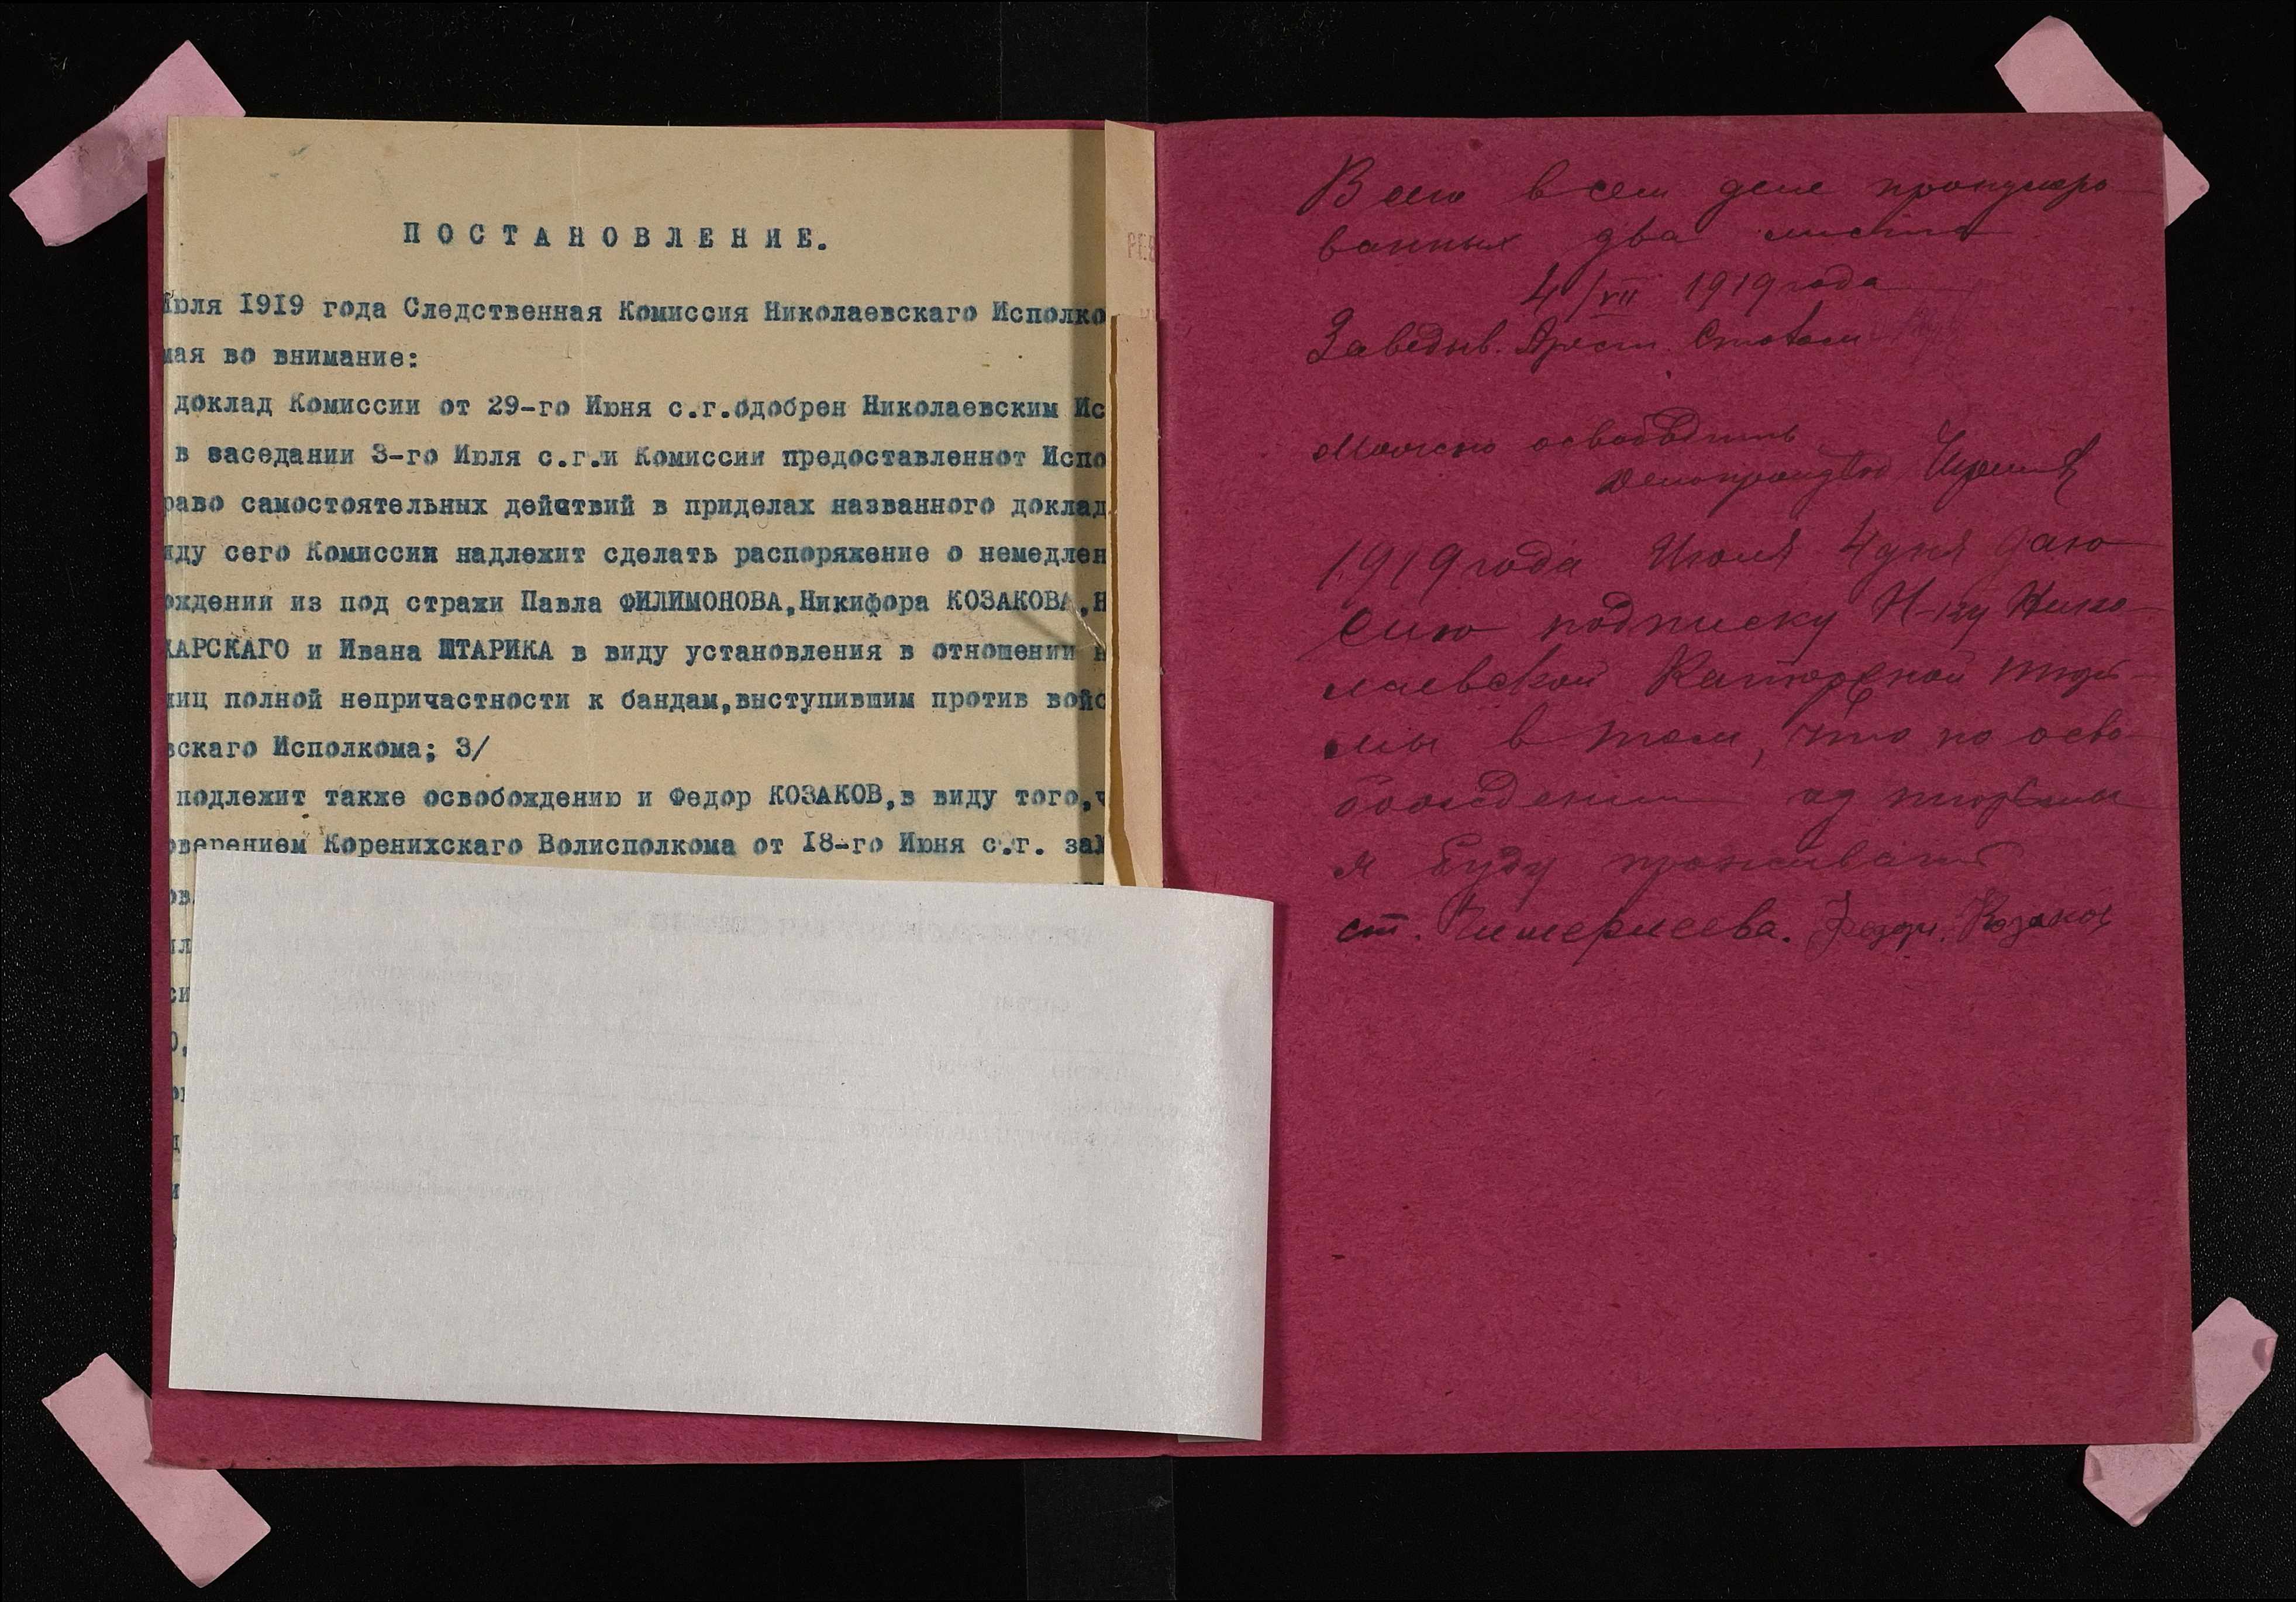 ПОСТАНОВЛЕНИЕ.
Июля 1919 года Следственная Комиссия Николаевскаго Исполко
мая во внимание:
доклад Комиссии от 29-го Июня с.г.одобрен Николаевским Ис
в заседании 3-го Июля с.г.и Комиссии предоставленнот Испо
раво самостоятельных действий в приделах названного доклад
иду сего Комиссии надлежит сделать распоряжение о немедлен
ождении из под стражи Павла ФИЛИМОНОВА,Никифора КОЗАКОВА,Н
КАРСКАГО и Ивана ШТАРИКА в виду установления в отношении н
лиц полной непричастности к бандам,выступившим против войс
вскаго Исполкома; 3/
подлежит также освобождению и Федор КОЗАКОВ,в виду того,ч
оверением Коренихскаго Волисполкома от 18-го Июня с.г. за
ов
ил
си
О,
д
и
РЕВ
Всего в сем деле пронумеро-
ванных два листа
4/VII 1919 года
Заведыв. Арест. Столом
Можно освободить
1919 года Июля 4 дня даю
сию подписку Н-ку Нико-
лаевской Каторжной тюрь-
мы в том, что по осво-
бождении из тюрьмы
я буду проживать
ст. Федор. Козаков